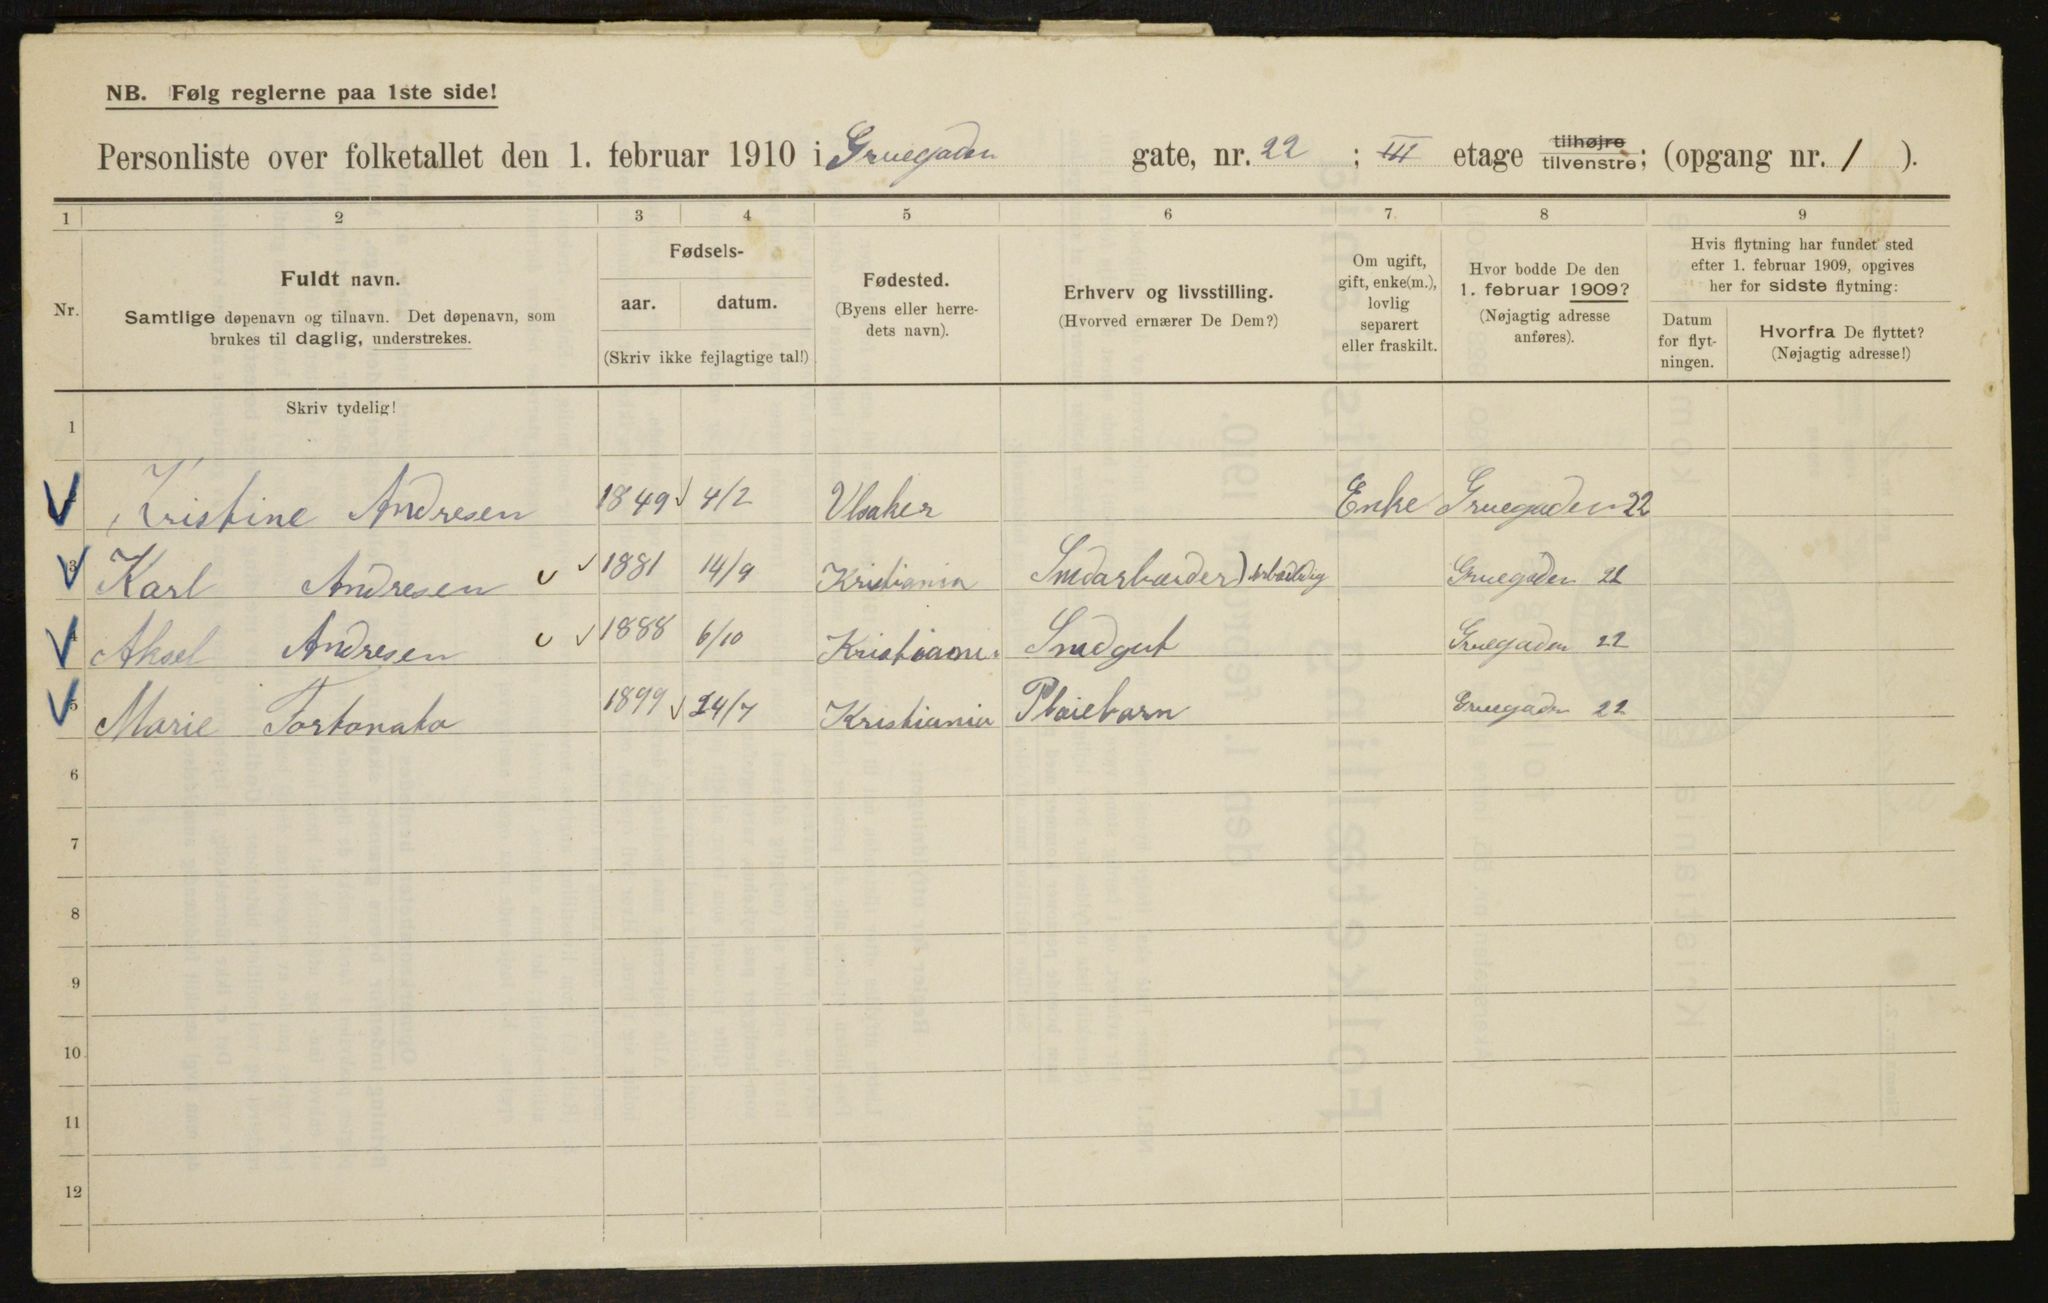 NB. Følg reglerne paa 1ste side!
Personliste over folketallet den 1. februar 1910 i Gruegaden gate, nr. 22 ; III etage tilhøjre tilvenstre; (opgang nr. 1 ).
1 2 3 4 5 6 7 8 9
Nr.
Fuldt navn.
Samtlige døpenavn og tilnavn. Det døpenavn, som
brukes til daglig, understrekes.
Fødsels-
aar. datum.
(Skriv ikke fejlagtige tal!)
Fødested.
(Byens eller herre-
dets navn).
Erhverv og livsstilling.
(Hvorved ernærer De Dem?)
Om ugift,
gift, enke(m.),
lovlig
separert
eller fraskilt.
Hvor bodde De den
1. februar 1909?
(Nøjagtig adresse
anføres).
Hvis flytning har fundet sted
efter 1. februar 1909, opgives
her for sidste flytning:
Datum
for flyt-
ningen.
Hvorfra De flyttet?
(Nøjagtig adresse!)
Skriv tydelig!
1
2 Kristine Andresen 1849 4/2 Ulsaker Enke Gruegaden 22
3 Karl Andresen 1881 14/9 Kristiania Gruegaden 22
4 Aksel Andresen 1888 6/10 Kristiania Smedgut Gruegaden 22
5 Marie Fortonato 1899 24/7 Kristiania Pleiebarn Gruegaden 22
6
7
8
9
10
11
12